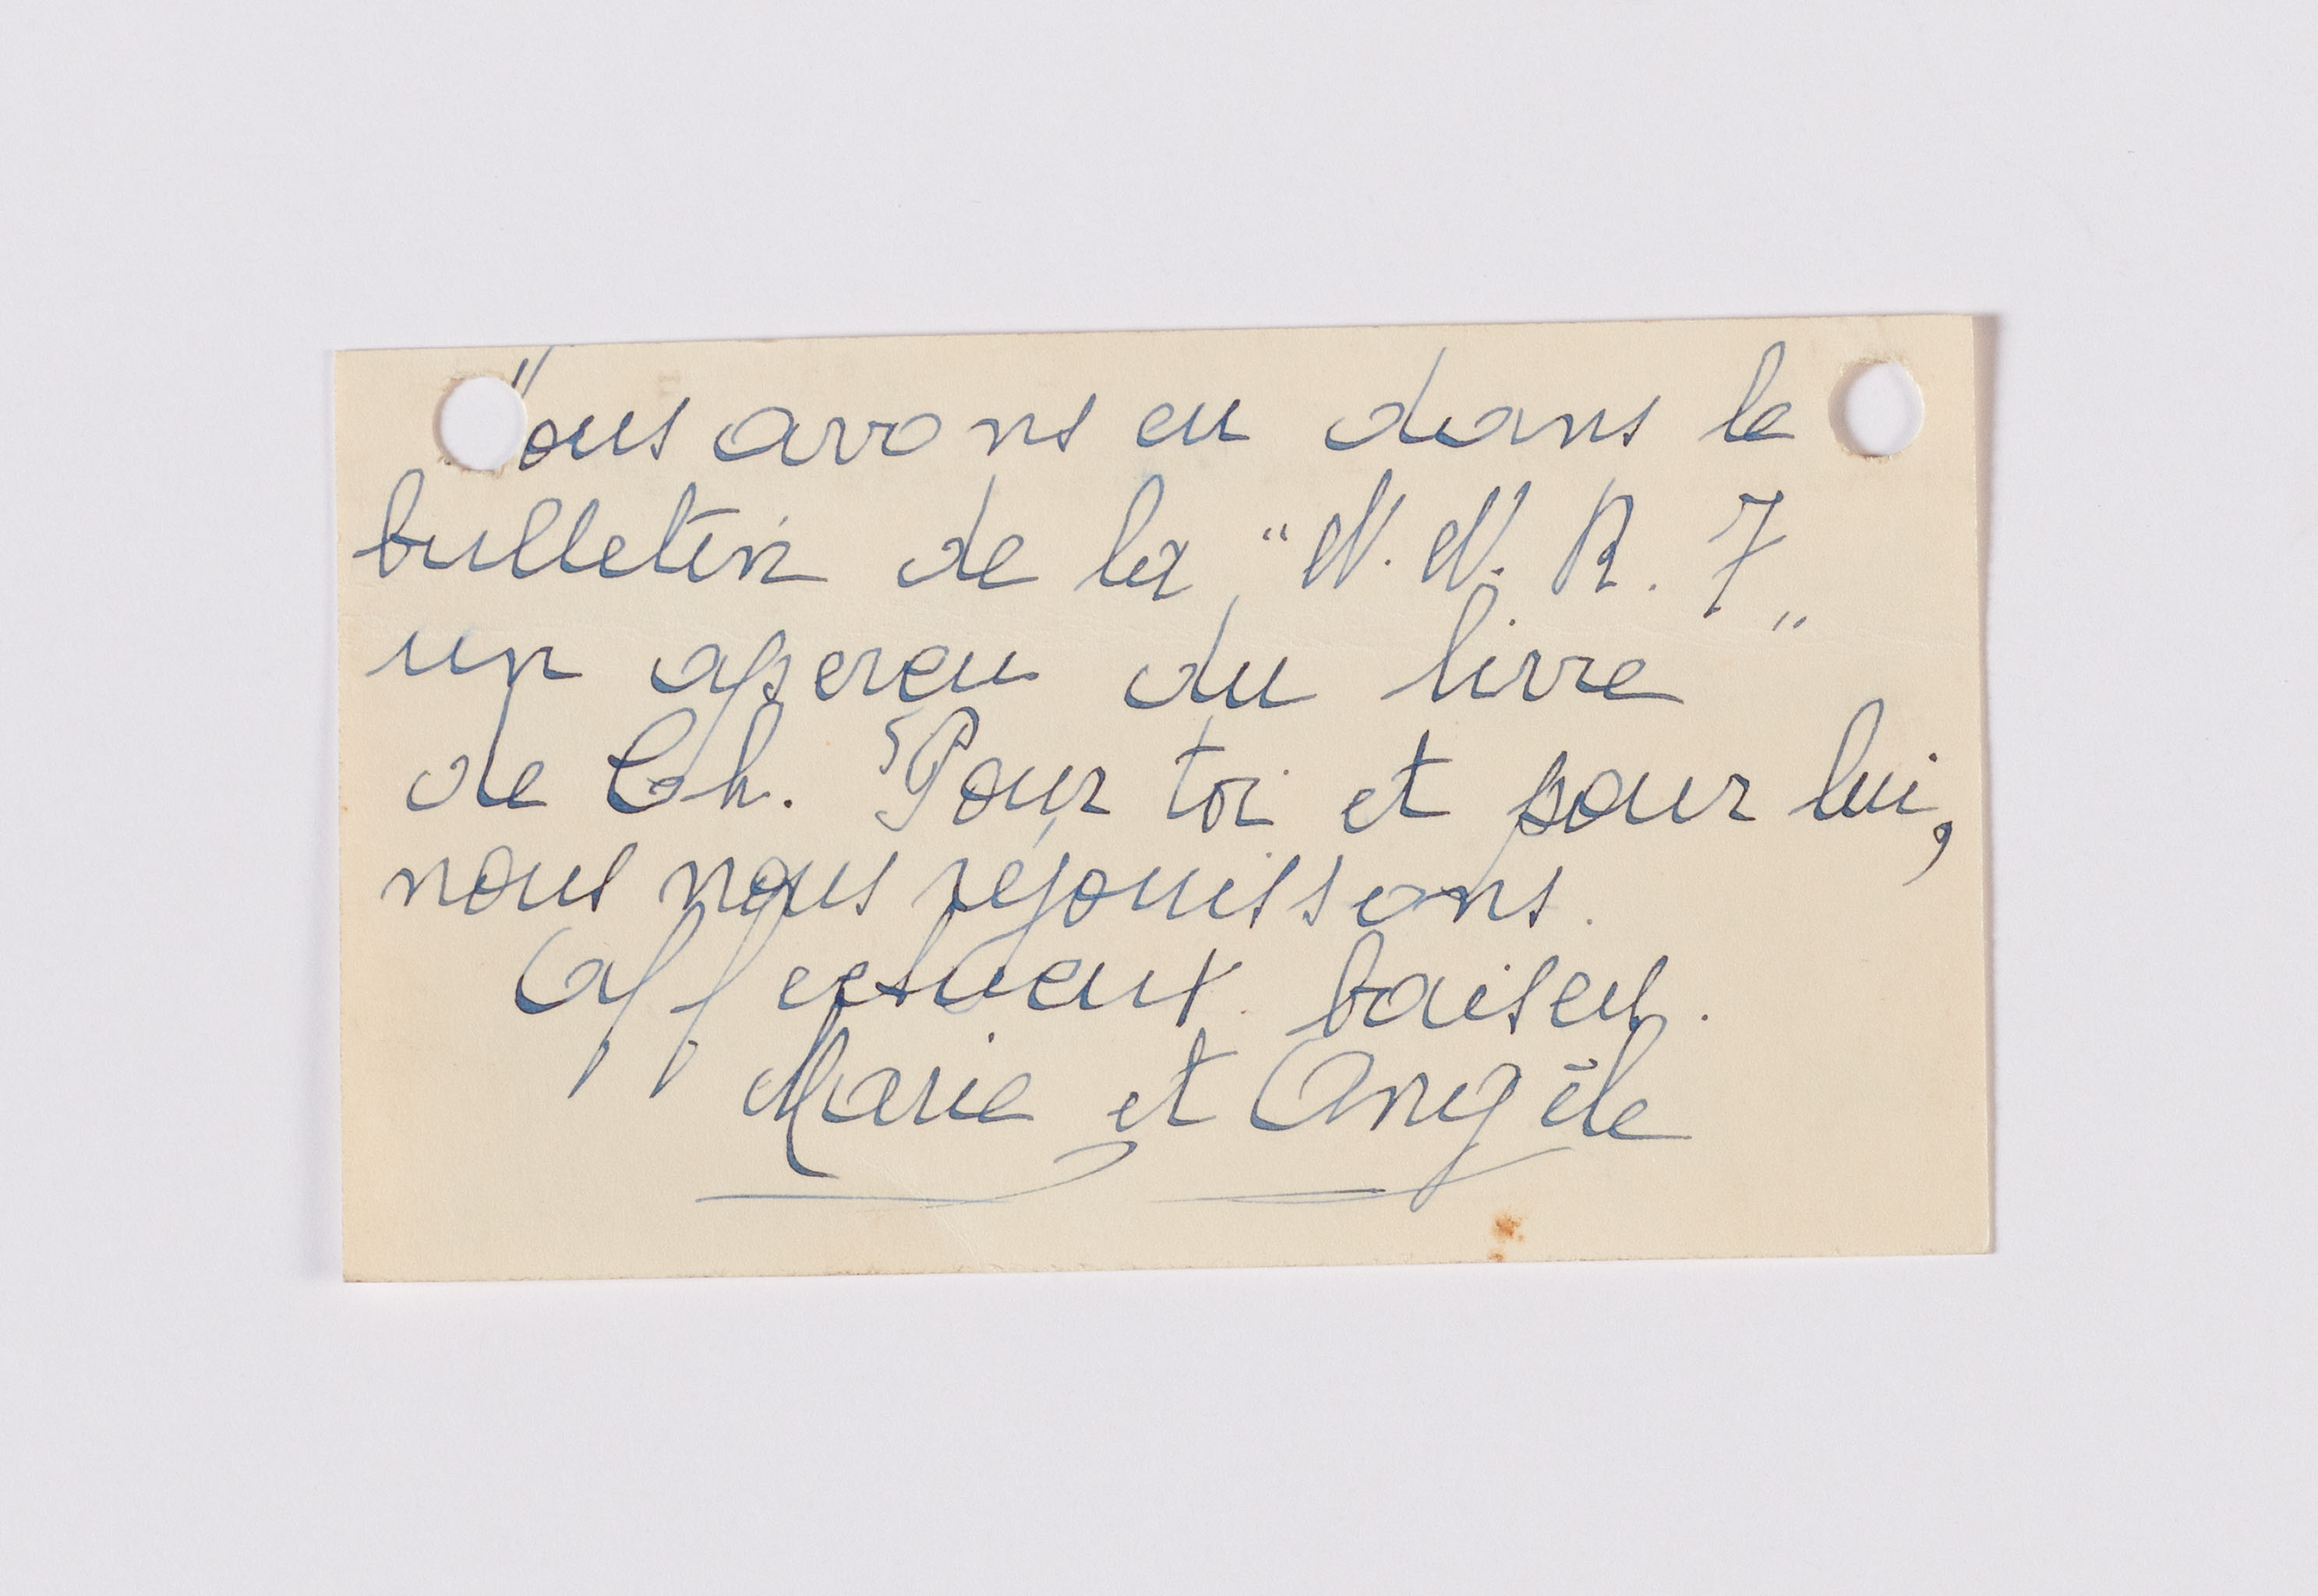 Nous avons eu dans le
bulletin de la "N. N. R. F"
un aperçu du livre
de Ch. Pour toi et pour lui,
nous nous réjouissons.
Affectueux baisers.
Marie et Angèle